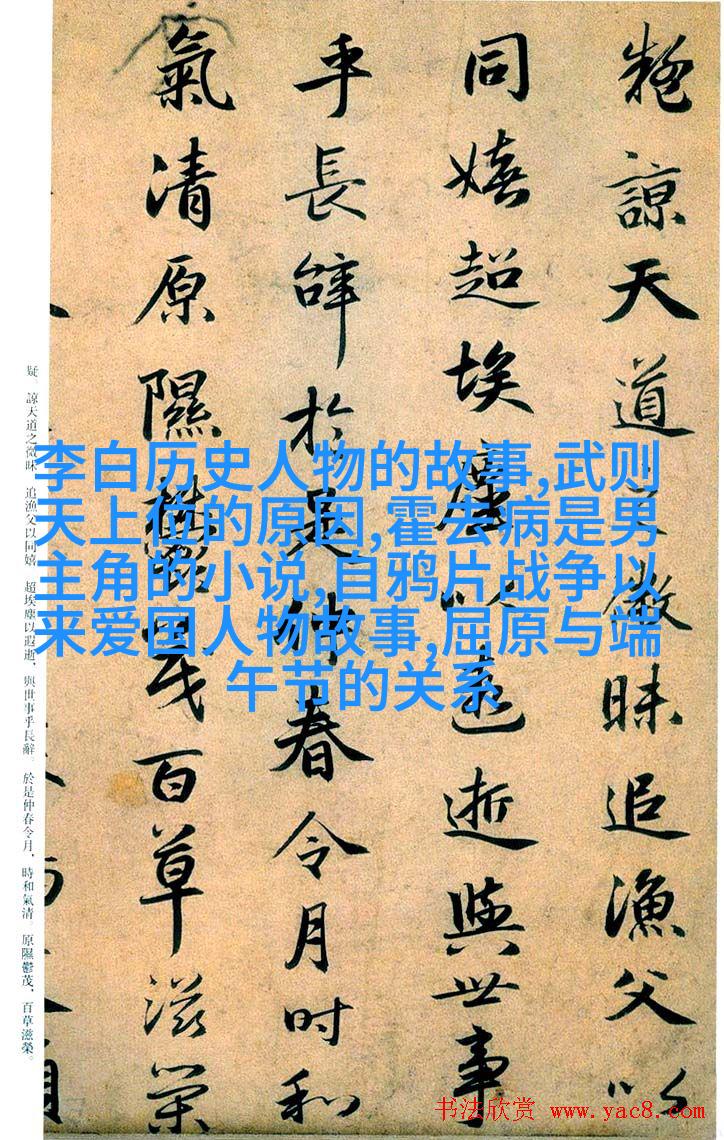 疑諒天道之微昧追漁父以
同嬉超埃塵以遐逝與世事
乎長辭於是仲春令月時和
氣清原隰鬱茂百草滋榮
疑。諒天道之微昧，追漁父以同嬉。超埃塵以遐逝，與世事乎長辭。於是仲春令月，時和氣清。原隰鬱茂，百草滋榮。
李白历史人物的故事,武则
天上位的原因,霍去病是男
主角的小说,自鸦片战争以
来爱国人物故事,屈原与端
午节的关系
书法欣赏 www.yac8.com